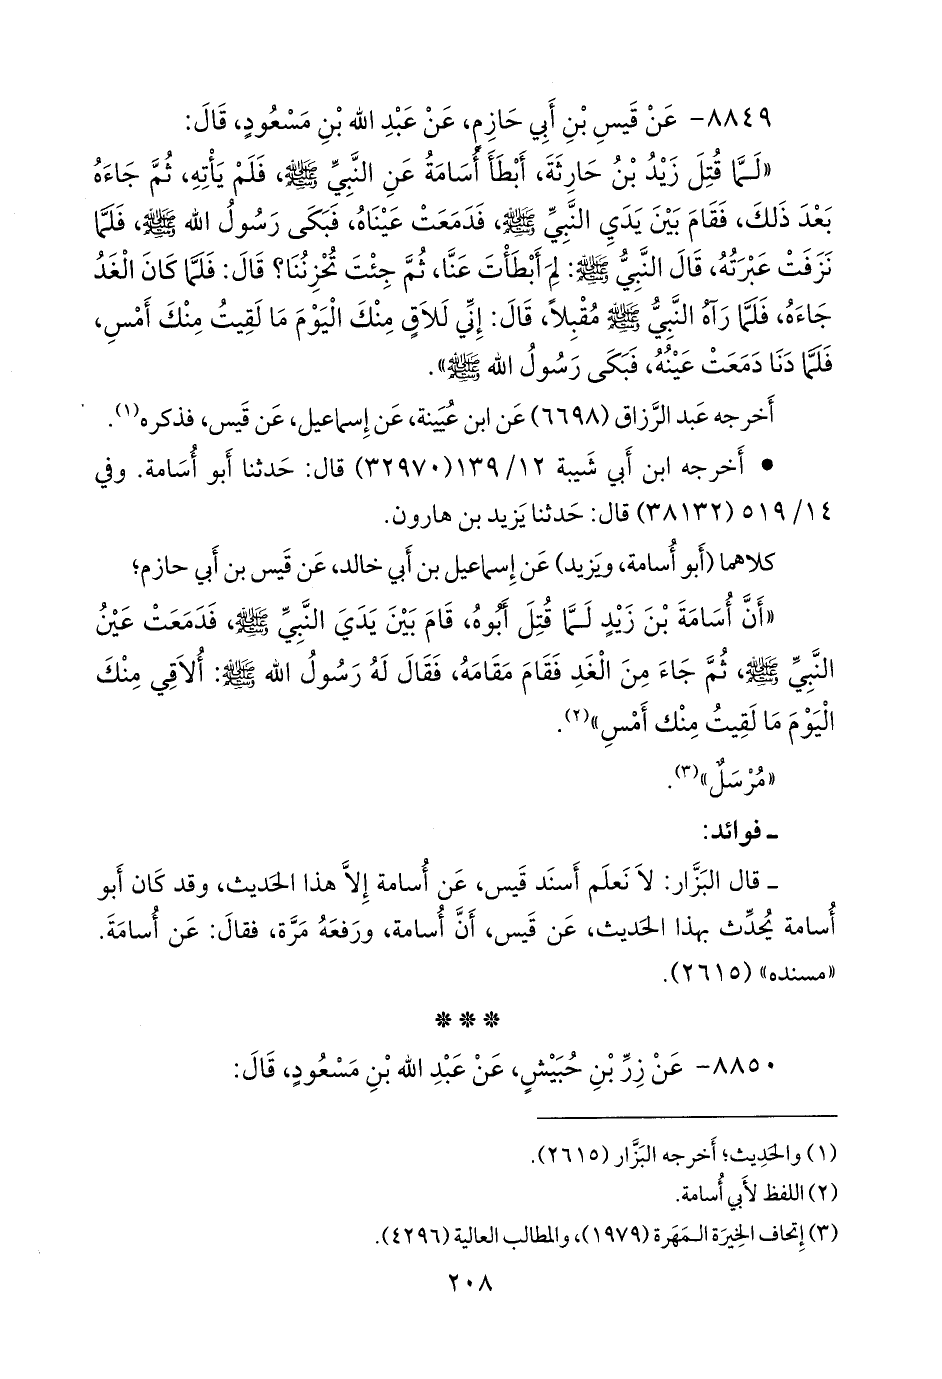 ٨٨٤٩- عَنْ قَيسِ بْنِ أَبِي حَازِمٍ، عَنْ عَبْدِ الله بْنِ مَسْعُودٍ، قَالَ:
«لَـمَّا قُتِلَ زَيْدُ بْنُ حَارِثَةَ، أَبْطَأَ أُسَامَةُ عَنِ النَّبِيِّ ﷺ، فَلَمْ يَأْتِهِ، ثُمَّ جَاءَهُ
بَعْدَ ذَلِكَ، فَقَامَ بَيْنَ يَدَيِ النَّبِيِّ ﷺ، فَدَمَعَتْ عَيْنَاهُ، فَبَكَى رَسُولُ الله ﷺ، فَلَمَّا
نَزَفَتْ عَبْرَتُهُ، قَالَ النَّبِيُّ ﷺ: لِمَ أَبْطَأْتَ عَنَّا، ثُمَّ جِئْتَ تُحْزِنُنَا؟ قَالَ: فَلَمَّا كَانَ الْغَدُ
جَاءَهُ، فَلَمَّا رَآهُ النَّبِيُّ ﷺ مُقْبِلاً، قَالَ: إِنِّي لَلاَقٍ مِنْكَ الْيَوْمَ مَا لَقِيتُ مِنْكَ أَمْسِ،
فَلَمَّا دَنَا دَمَعَتْ عَيْنُهُ، فَبَكَى رَسُولُ الله ﷺ».
أَخرجه عَبد الرَّزاق (٦٦٩٨) عَن ابن عُيَينة، عَن إِسماعيل، عَن قَيس، فذكره(١).
• أَخرجه ابن أَبي شَيبة ١٢/ ١٣٩(٣٢٩٧٠) قال: حَدثنا أَبو أُسَامة. وفي
١٤/ ٥١٩ (٣٨١٣٢) قال: حَدثنا يَزيد بن هارون.
كلاهما (أَبو أُسامة، ويَزيد) عَن إِسماعيل بن أَبي خالد، عَن قَيس بن أَبي حازم؛
«أَنَّ أُسَامَةَ بْنَ زَيْدٍ لَـمَّا قُتِلَ أَبُوهُ، قَامَ بَيْنَ يَدَيَ النَّبِيِّ ﷺ، فَدَمَعَتْ عَيْنُ
النَّبِيِّ ﷺ، ثُمَّ جَاءَ مِنَ الْغَدِ فَقَامَ مَقَامَهُ، فَقَالَ لَهُ رَسُولُ الله ﷺ: أُلاَقِي مِنْكَ
الْيَوْمَ مَا لَقِيتُ مِنْكَ أَمْسِ»(٢).
«مُرْسَلٌ»(٣).
ـ فوائد:
ـ قال البَزَّار: لاَ نَعلَم أَسنَد قَيس، عَن أُسامة إِلاَّ هذا الحَديث، وقد كَان أَبو
أُسامة يُحدِّث بهذا الحَديث، عَن قَيس، أَنَّ أُسامة، ورَفعَهُ مَرَّة، فقالَ: عَن أُسامَةَ.
«مسنده» (٢٦١٥).
* * *
٨٨٥٠- عَنْ زِرِّ بْنِ حُبَيْشٍ، عَنْ عَبْدِ الله بْنِ مَسْعُودٍ، قَالَ:
(١) والحَدِيث؛ أَخرجه البَزَّار (٢٦١٥).
(٢) اللفظ لأَبي أُسامة.
(٣) إِتحاف الخِيرَة الـمَهَرة (١٩٧٩)، والمطالب العالية (٤٢٩٦).
٢٠٨